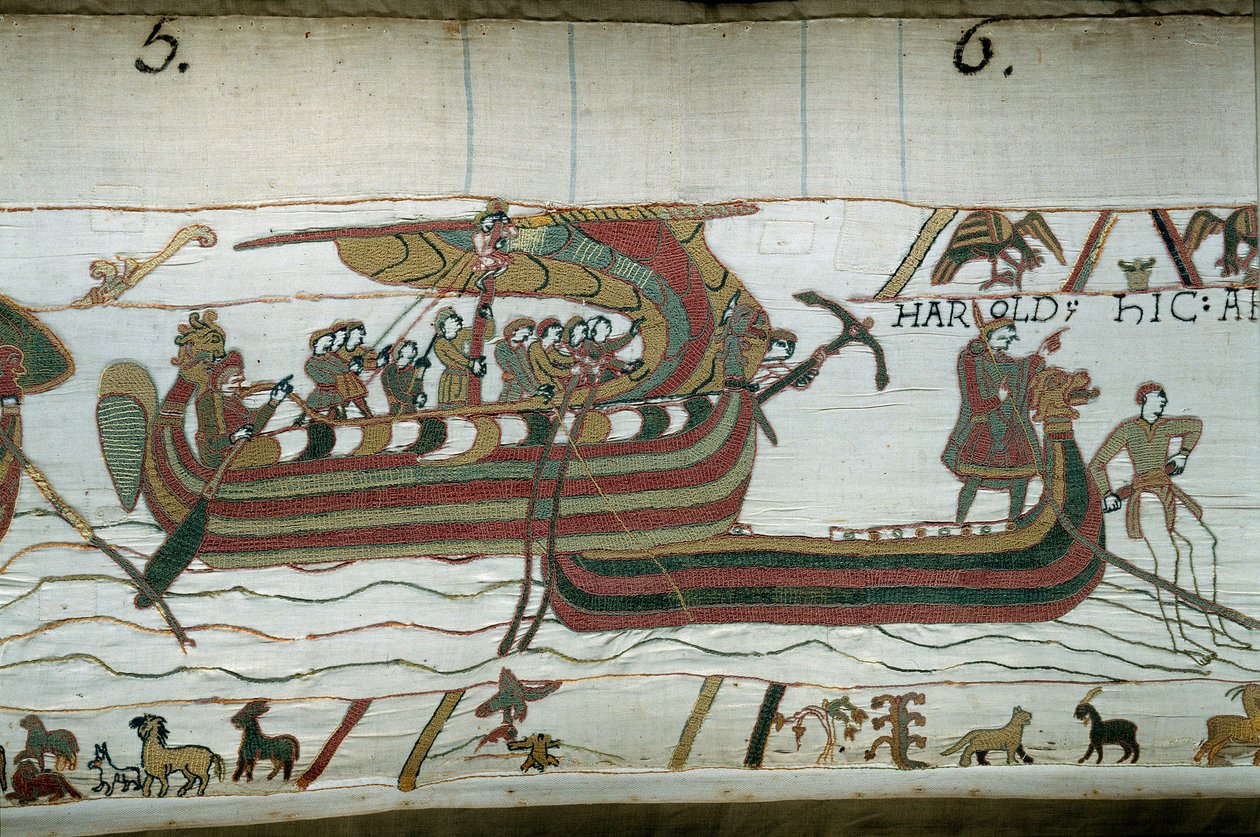 5. 6.
HAROLD; hIC: AP